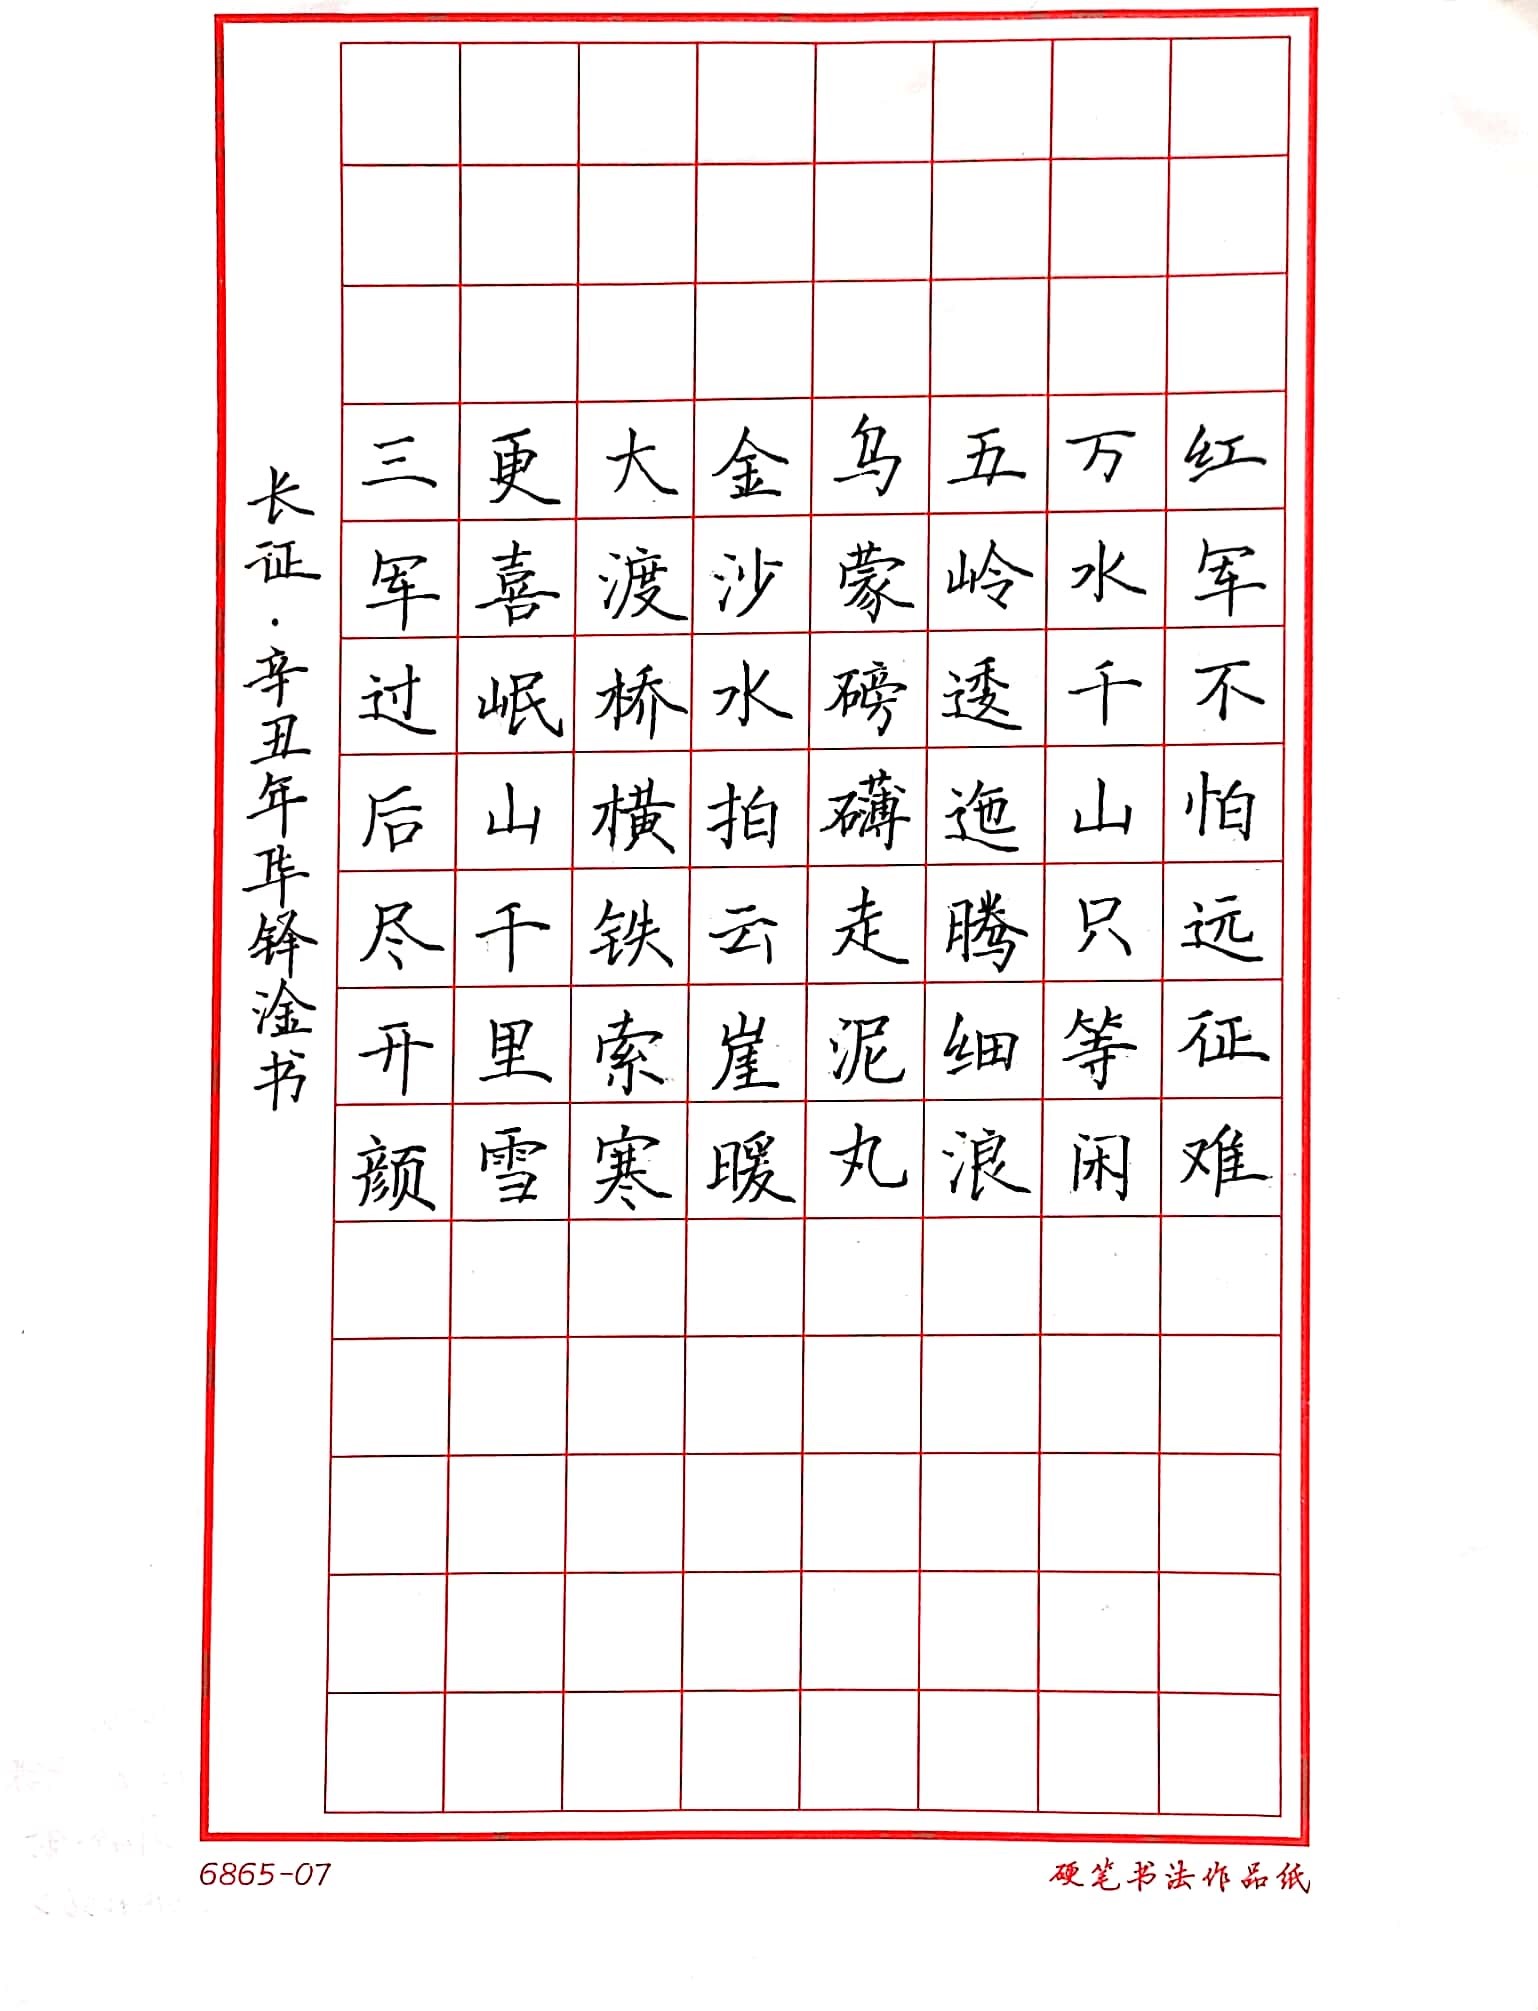 红军不怕远征难
万水千山只等闲
五岭逶迤腾细浪
乌蒙磅礴走泥丸
金沙水拍云崖暖
大渡桥横铁索寒
更喜岷山千里雪
三军过后尽开颜
长征·辛丑年铎淦书
6865-07
硬笔书法作品纸